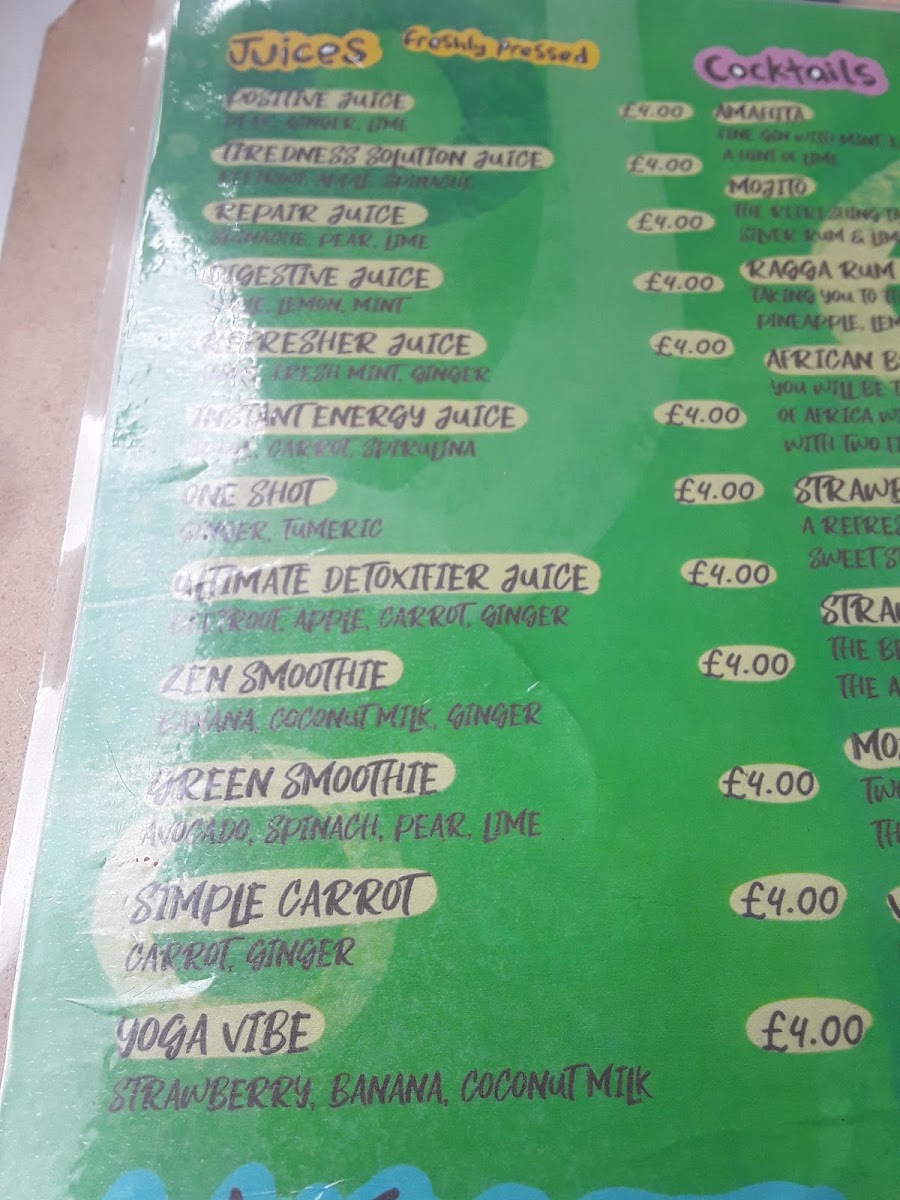 Juices Freshly Pressed
POSITIVE JUICE £4.00
PEAR, GINGER, LIME
TIREDNESS SOLUTION JUICE £4.00
BEETROOT, APPLE, SPINACHE
REPAIR JUICE £4.00
SPINACHE, PEAR, LIME
DIGESTIVE JUICE £4.00
LEMON, MINT
REFRESHER JUICE £4.00
FRESH MINT, GINGER
INSTANT ENERGY JUICE £4.00
CARROT, SPIRULINA
ONE SHOT £4.00
GINGER, TUMERIC
ULTIMATE DETOXIFIER JUICE £4.00
BEETROOT, APPLE, CARROT, GINGER
ZEN SMOOTHIE £4.00
BANANA, COCONUT MILK, GINGER
GREEN SMOOTHIE £4.00
AVOCADO, SPINACH, PEAR, LIME
SIMPLE CARROT £4.00
CARROT, GINGER
YOGA VIBE £4.00
STRAWBERRY, BANANA, COCONUT MILK
Cocktails
AMAHITA
FINE GIN WITH MINT
A HINT OF LIME
MOJITO
THE REFRESHING
SILVER RUM &
RAGGA RUM
TAKING YOU TO
PINEAPPLE,
AFRICAN
YOU WILL BE
OF AFRICA
WITH TWO
A
SWEET
THE
THE